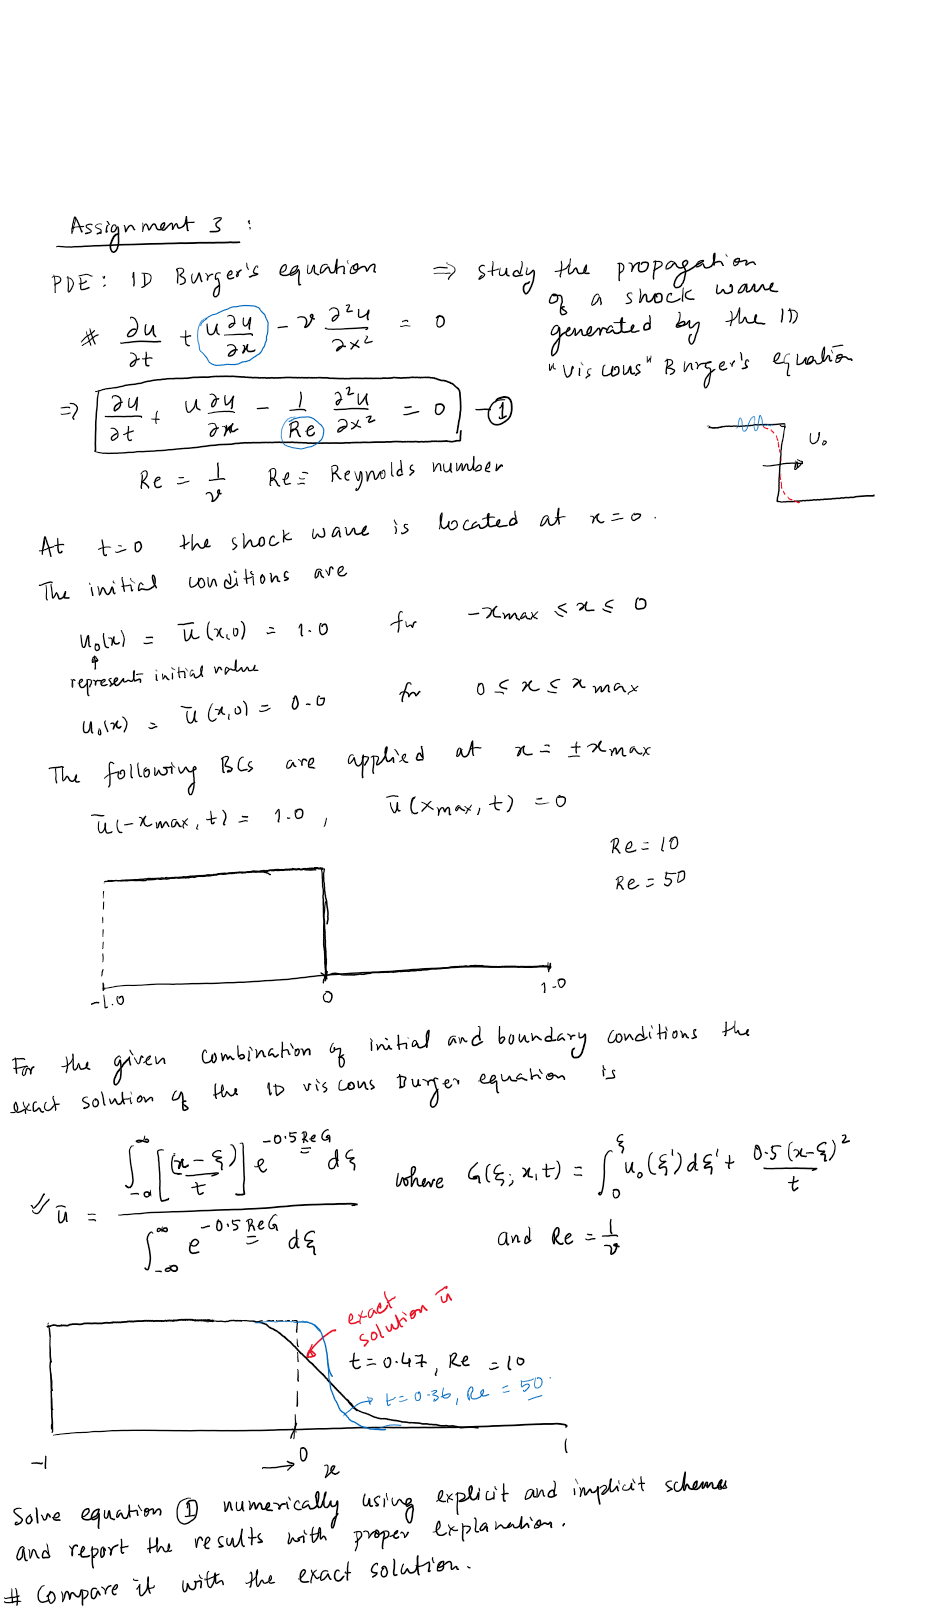 Assignment 3 :
PDE : 1D Burger's equation ⇒ study the propagation
of a shock wave
generated by the 1D
"viscous" Burger's equation
# ∂u/∂t + u ∂u/∂x - ν ∂²u/∂x² = 0
⇒ ∂u/∂t + u ∂u/∂x - 1/Re ∂²u/∂x² = 0 - ①
U₀
Re = 1/ν Re = Reynolds number
At t=0 the shock wave is located at x=0.
The initial conditions are
u₀(x) = ū(x,0) = 1.0 for -xmax ≤ x ≤ 0
represents initial value
u₀(x) = ū(x,0) = 0.0 for 0 ≤ x ≤ xmax
The following BCs are applied at x = ± xmax
ū(-xmax, t) = 1.0 , ū(xmax, t) = 0
Re = 10
Re = 50
-1.0 0 1.0
For the given combination of initial and boundary conditions the
exact solution of the 1D viscous Burger equation is
ū = ∫_{-∞}^{∞} [(x-ξ)/t] e^{-0.5 Re G} dξ / ∫_{-∞}^{∞} e^{-0.5 Re G} dξ where G(ξ; x,t) = ∫_0^ξ u₀(ξ')dξ' + 0.5(x-ξ)²/t
and Re = 1/ν
exact
solution ū
t=0.47, Re = 10
t=0.36, Re = 50.
-1 0 1
→ x
Solve equation ① numerically using explicit and implicit schemes
and report the results with proper explanation.
# Compare it with the exact solution.